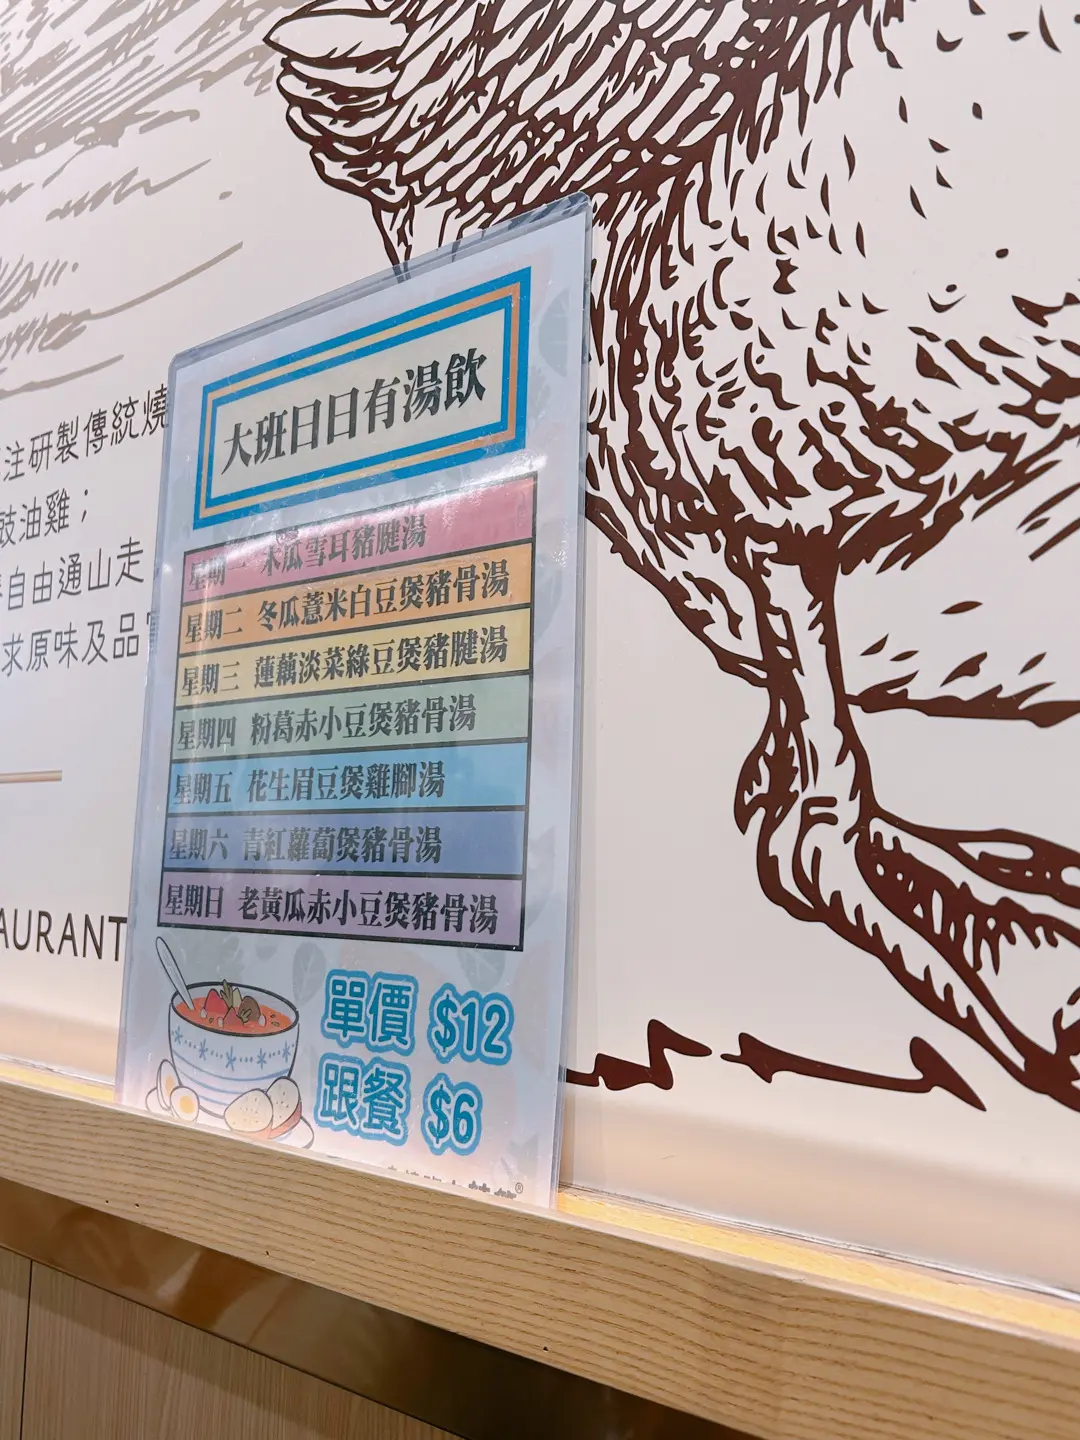 注研製傳統燒
豉油雞；
自由通山走
求原味及品
AURANT
大班日日有湯飲
星期一 木瓜雪耳豬腱湯
星期二 冬瓜薏米白豆煲豬骨湯
星期三 蓮藕淡菜綠豆煲豬腱湯
星期四 粉葛赤小豆煲豬骨湯
星期五 花生眉豆煲雞腳湯
星期六 青紅蘿蔔煲豬骨湯
星期日 老黃瓜赤小豆煲豬骨湯
單價 $12
跟餐 $6